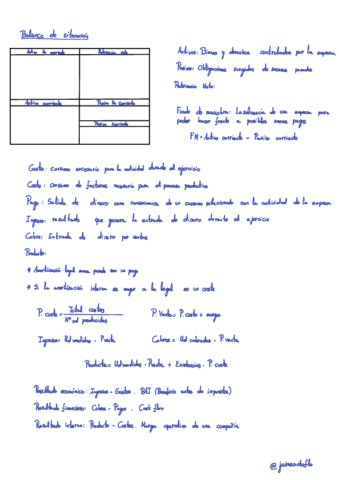 Balance de situación
Activo No corriente
Patrimonio neto
Activo corriente
Pasivo No Corriente
Pasivo Corriente
Activos: Bienes y derechos controlados por la empresa
Pasivos: Obligaciones surgidas de sucesos pasados
Patrimonio Neto:
Fondo de maniobra: La solvencia de una empresa para
poder hacer frente a posibles pagos
FM = Activo corriente - Pasivo corriente
Gasto: consumo necesario para la actividad durante el ejercicio
Coste: consumo de factores necesario para el proceso productivo
Pago: Salida de dinero como consecuencia de un consumo relacionado con la actividad de la empresa
Ingreso: resultado que genera la entrada de dinero durante el ejercicio
Cobro: Entrada de dinero por ventas
Producto:
* Amortización legal nunca puede ser un pago
* Si la amortización interna es mayor a la legal es un coste
P. coste = Total costes / Nº ud producidas
P. Venta: P. coste + margen
Ingresos: Ud vendidas . P. venta
Cobros = Ud cobradas . P. venta
Producto = Ud vendidas . P. venta + Existencias . P. coste
Resultado económico: Ingresos - Gastos. BAI (Beneficio antes de impuestos)
Resultado financiero: Cobros - Pagos. Cash flow
Resultado interno: Producto - Costes. Margen operativo de una compañía